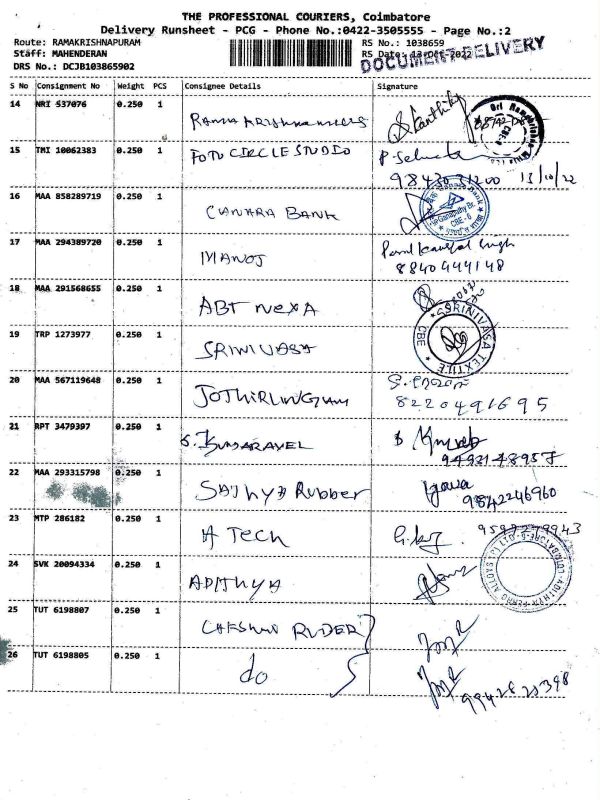 THE PROFESSIONAL COURIERS, Coimbatore
Delivery Runsheet - PCG - Phone No.:0422-3505555 - Page No.:2
Route: RAMAKRISHNAPURAM
RS No.: 1038659
Staff: MAHENDERAN
RS Date: 13-Oct-2022
DOCUMENT DELIVERY
DRS No.: DCJB103865902
S No Consignment No Weight PCS Consignee Details Signature
14 NRI 537076 0.250 1
15 TMI 10062383 0.250 1 FOTO CIRCLE STUDIO
13/10/22
16 MAA 858289719 0.250 1 CANARA BANK
17 MAA 294389720 0.250 1 MANOJ
8840444148
18 MAA 291568655 0.250 1 ABT NEXA
19 TRP 1273977 0.250 1 SRINIVASA
SRINIVASA TEXTILE CBE
20 MAA 567119648 0.250 1 JOTHIRLINGAM
8220491695
21 RPT 3479397 0.250 1 S. KUMARAVEL
22 MAA 293315798 0.250 1 SATHYA Rubber
9842246960
23 MTP 286182 0.250 1 A TECH
24 SVK 20094334 0.250 1 ADITHYA
25 TUT 6198807 0.250 1
26 TUT 6198805 0.250 1 do